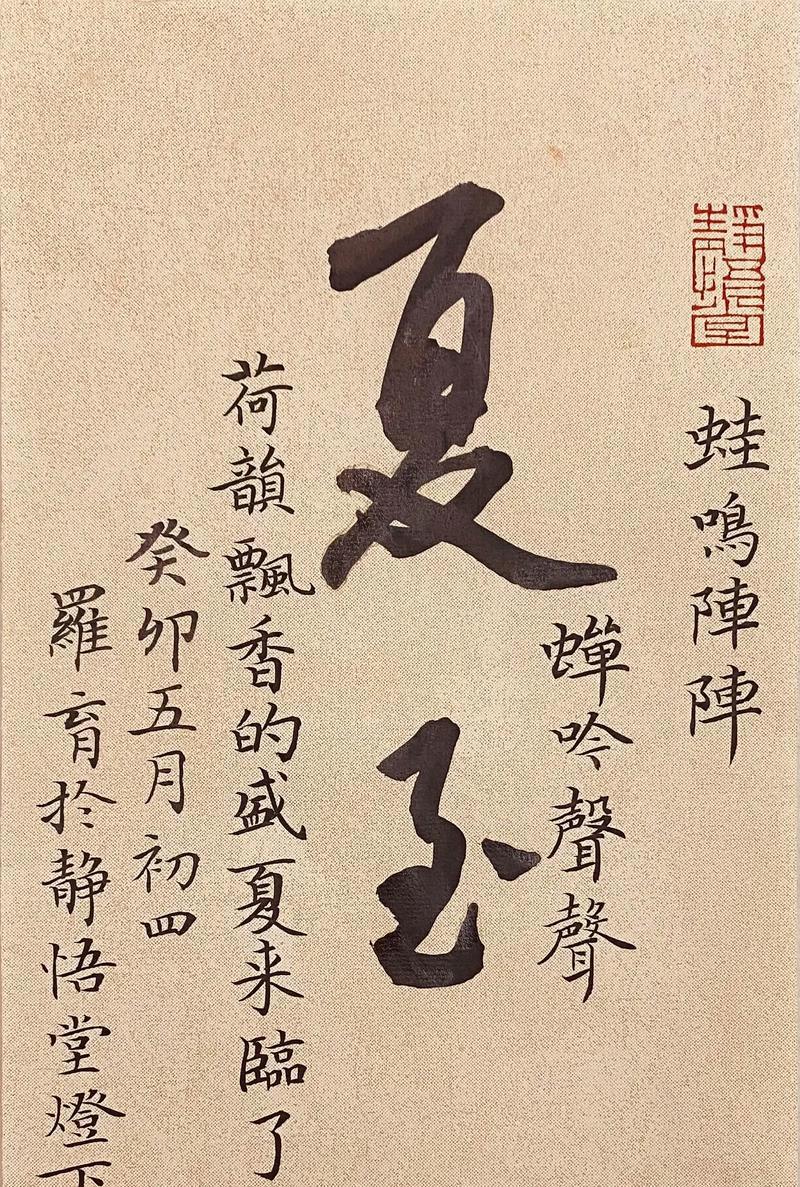 靜悟堂
蛙鳴陣陣
蟬吟聲聲
夏至
荷韻飄香的盛夏来臨了
癸卯五月初四
羅育於静悟堂燈下